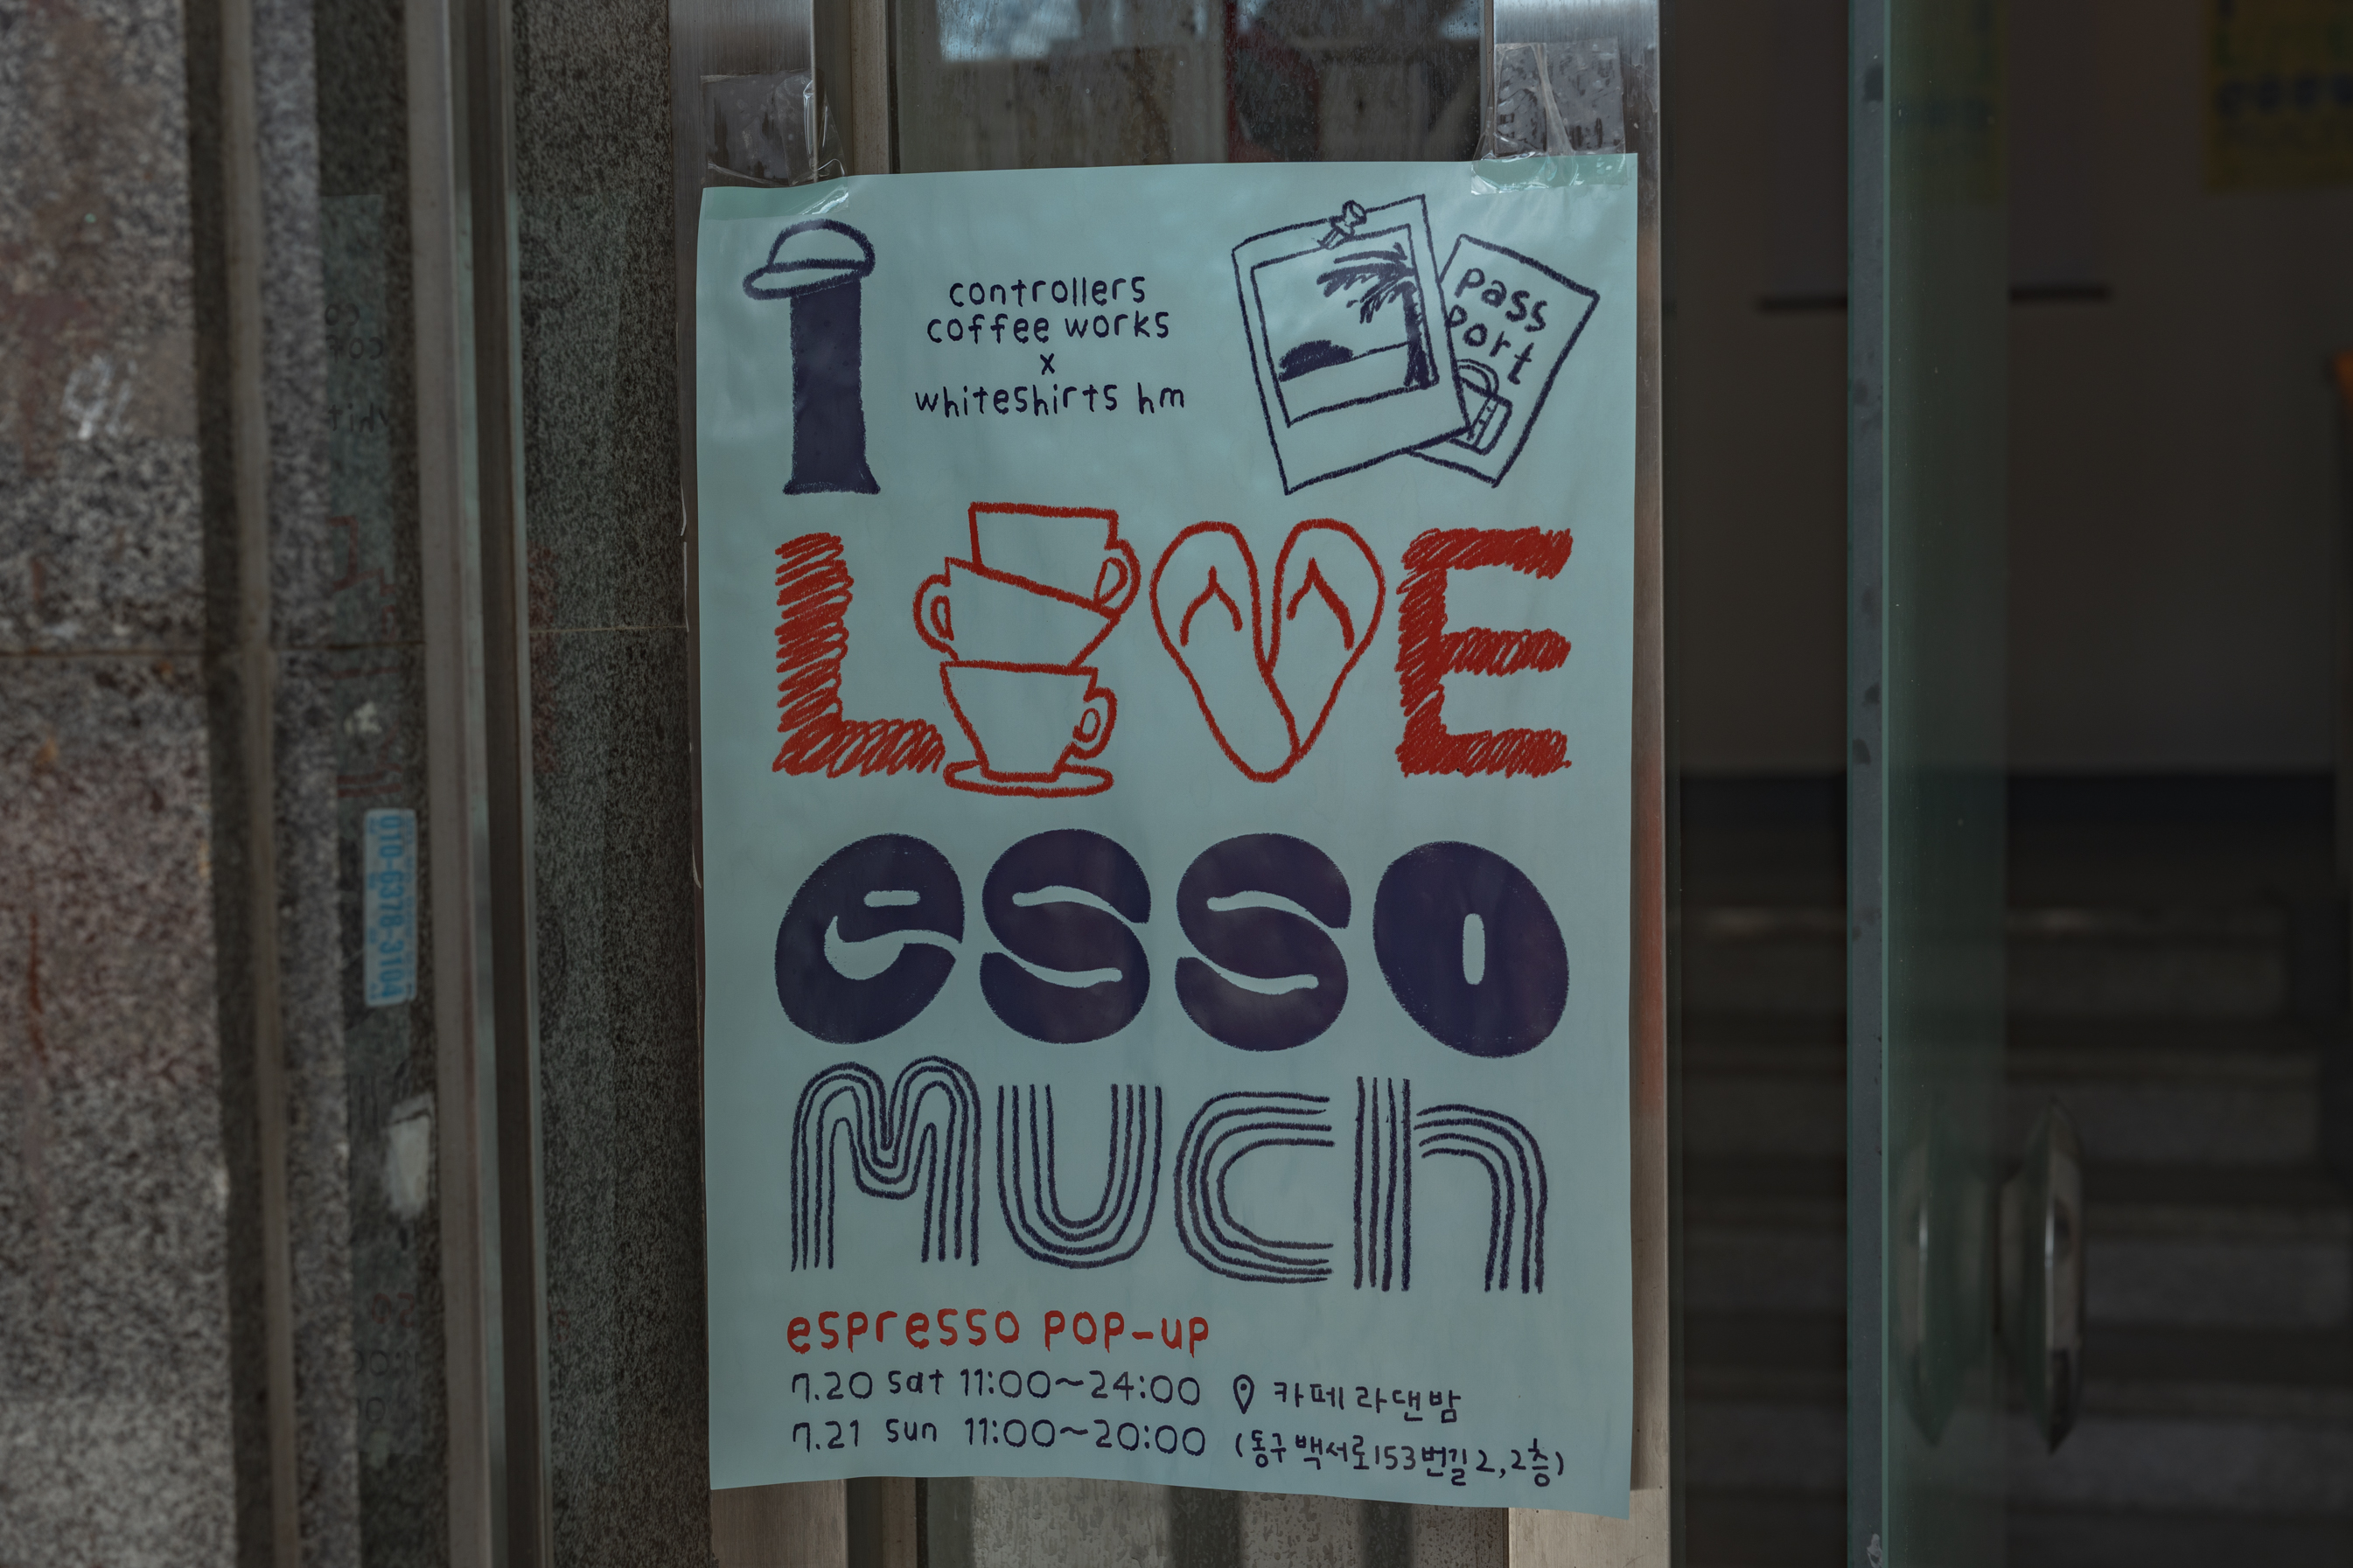 I
controllers
coffee works
x
whiteshirts hm
pass
port
LOVE
esso
MUCh
espresso POP-UP
7.20 sat 11:00~24:00 카페 라댄밤
7.21 sun 11:00~20:00 (동구 백서로153번길 2, 2층)
010-6378-3104